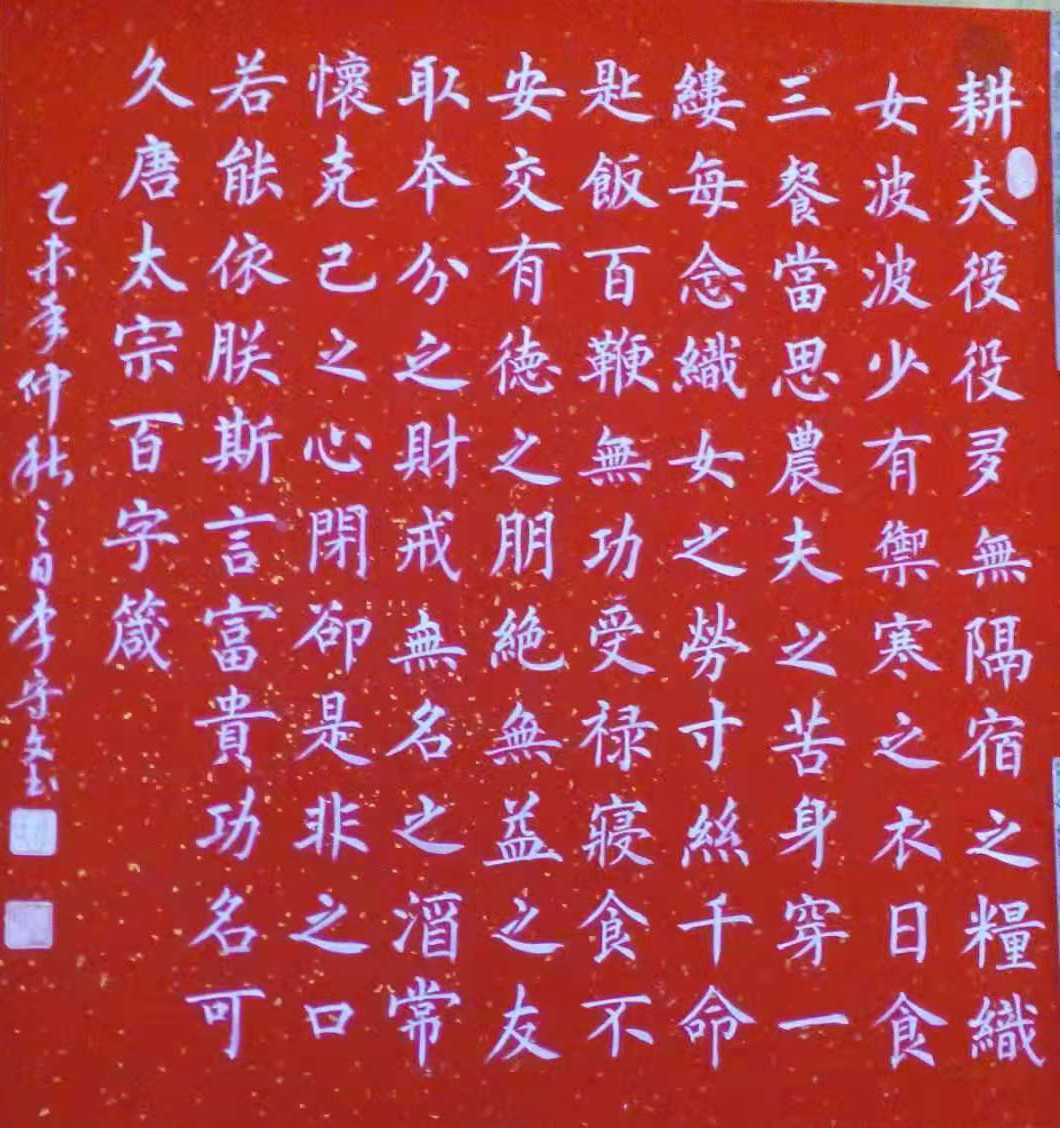 耕夫役役多無隔宿之糧織
女波波少有禦寒之衣日食
三餐當思農夫之苦身穿一
縷每念織女之勞寸絲千命
匙飯百鞭無功受禄寢食不
安交有德之朋絕無益之友
取本分之財戒無名之酒常
懷克己之心閉卻是非之口
若能依朕斯言富貴功名可
久唐太宗百字箴
乙未年仲秋之日李守文书